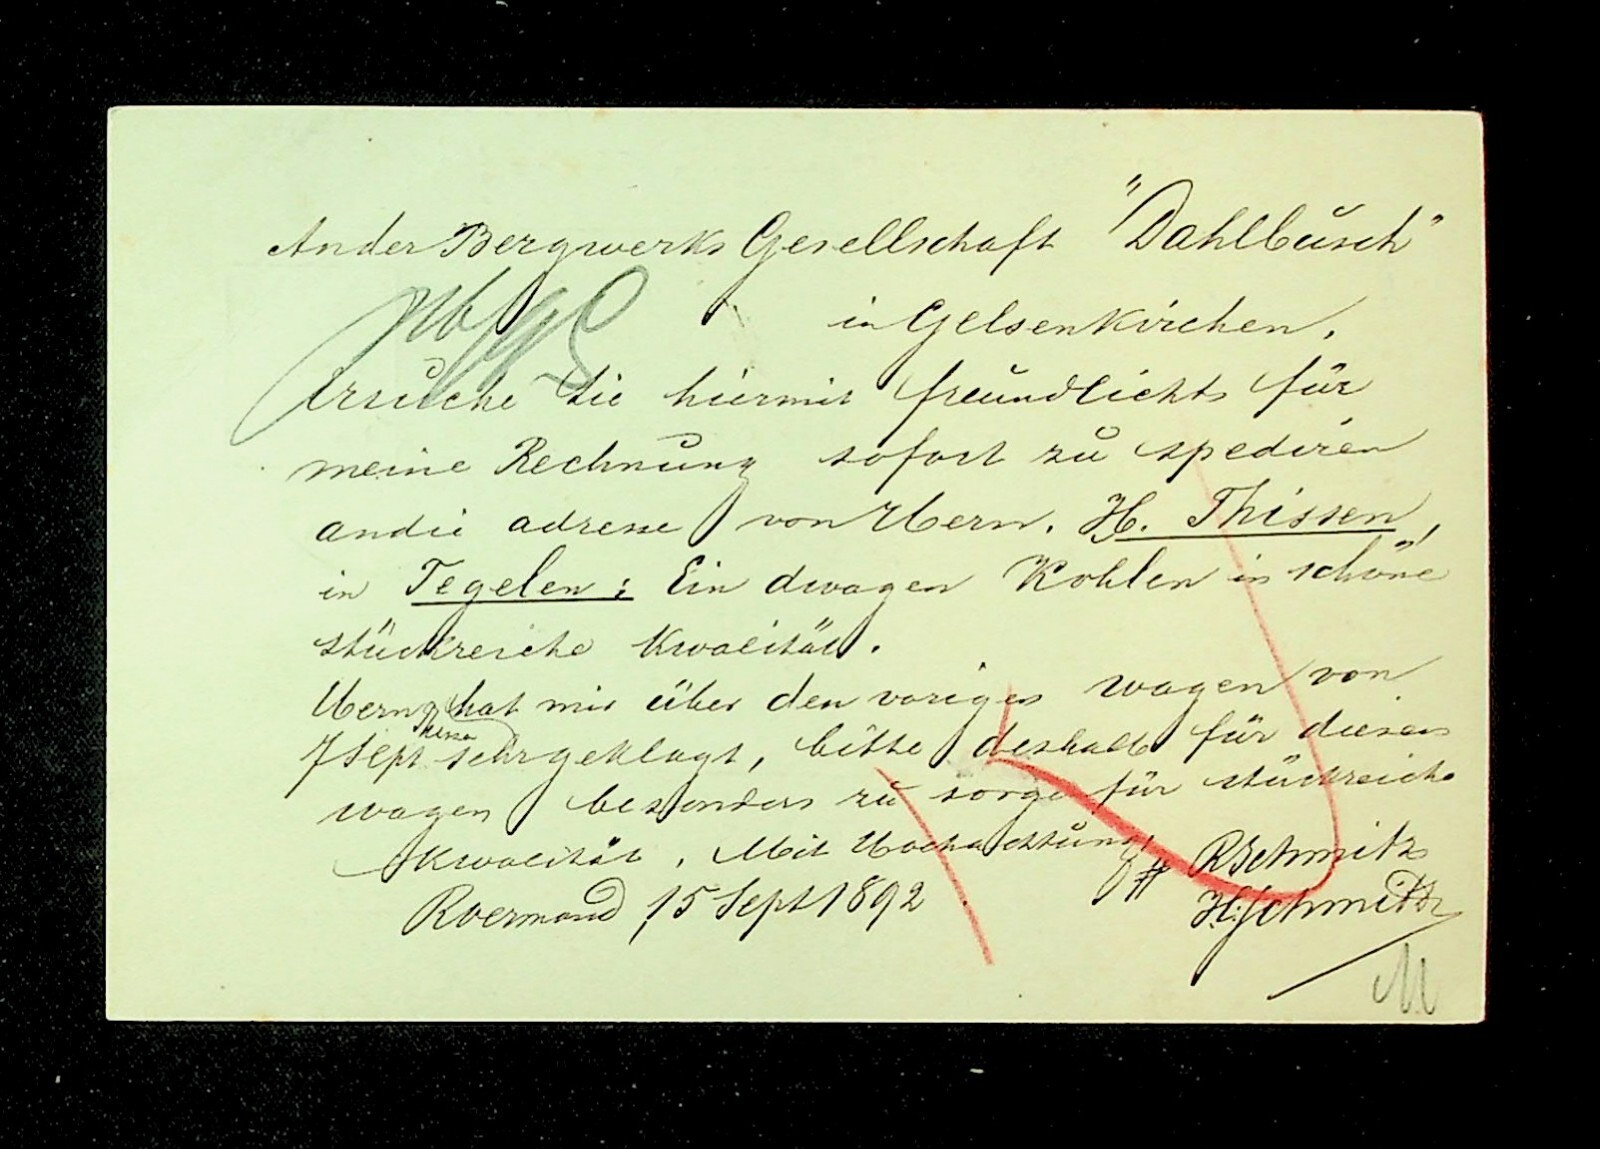 An der Bergwerks Gesellschaft "Dahlbusch"
in Gelsenkirchen.
Ersuche Sie hiermit freundlichts für
meine Rechnung sofort zu spediren
an die adresse von Hern. H. Thissen,
in Tegelen: Ein dwagen Kohlen in schöne
stückreiche Kwalität.
Hern hat mir über den voriges wagen von
7 Sept sehr geklagt, bitte deshalb für diesen
wagen besonders zu sorge für stückreiche
Kwalität. Mit Hochachtung
Roermond, 15 Sept 1892. R Schmitz
H. Schmitz
M